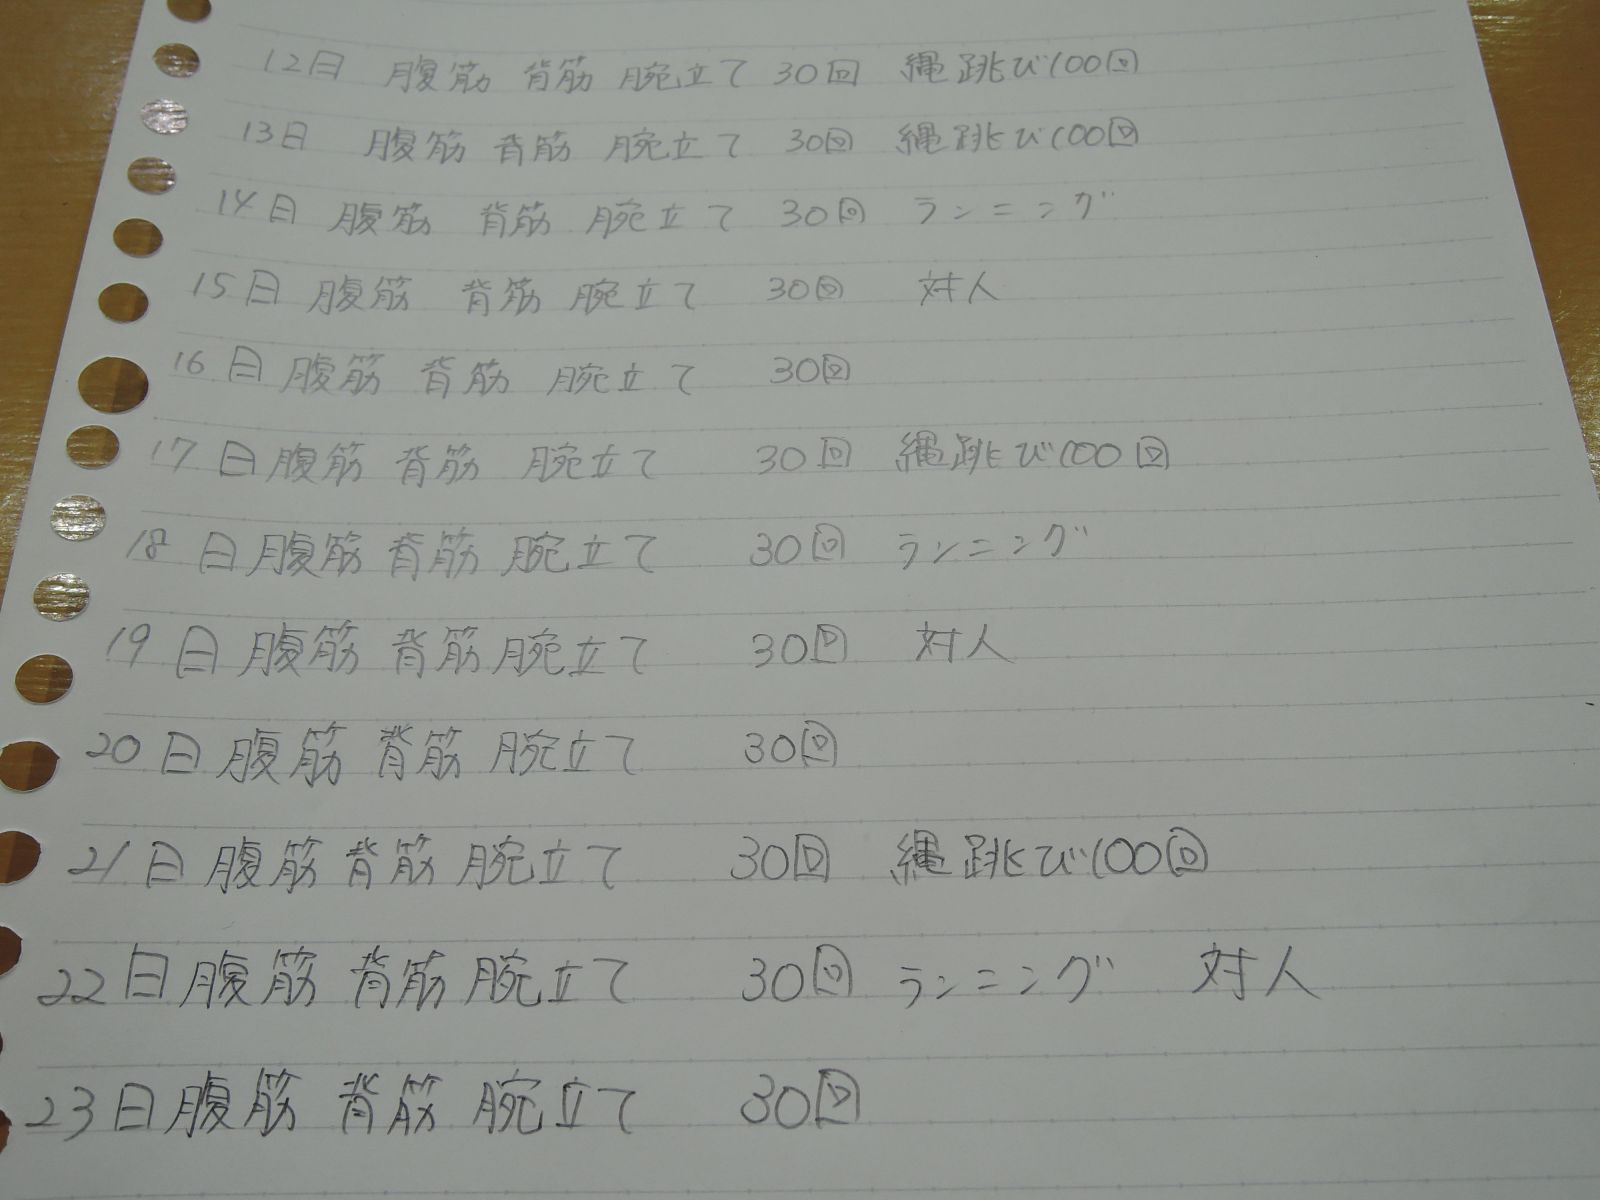 12日 腹筋 背筋 腕立て 30回 縄跳び100回
13日 腹筋 背筋 腕立て 30回 縄跳び100回
14日 腹筋 背筋 腕立て 30回 ランニング
15日 腹筋 背筋 腕立て 30回 対人
16日 腹筋 背筋 腕立て 30回
17日 腹筋 背筋 腕立て 30回 縄跳び100回
18日 腹筋 背筋 腕立て 30回 ランニング
19日 腹筋 背筋 腕立て 30回 対人
20日 腹筋 背筋 腕立て 30回
21日 腹筋 背筋 腕立て 30回 縄跳び100回
22日 腹筋 背筋 腕立て 30回 ランニング 対人
23日 腹筋 背筋 腕立て 30回